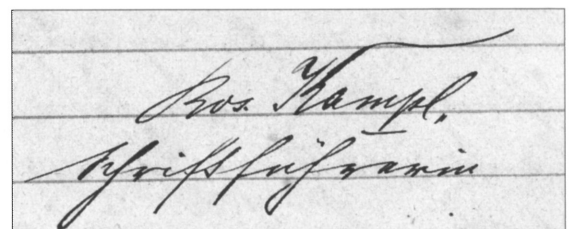 Ros. Kampl.
Schriftführerin